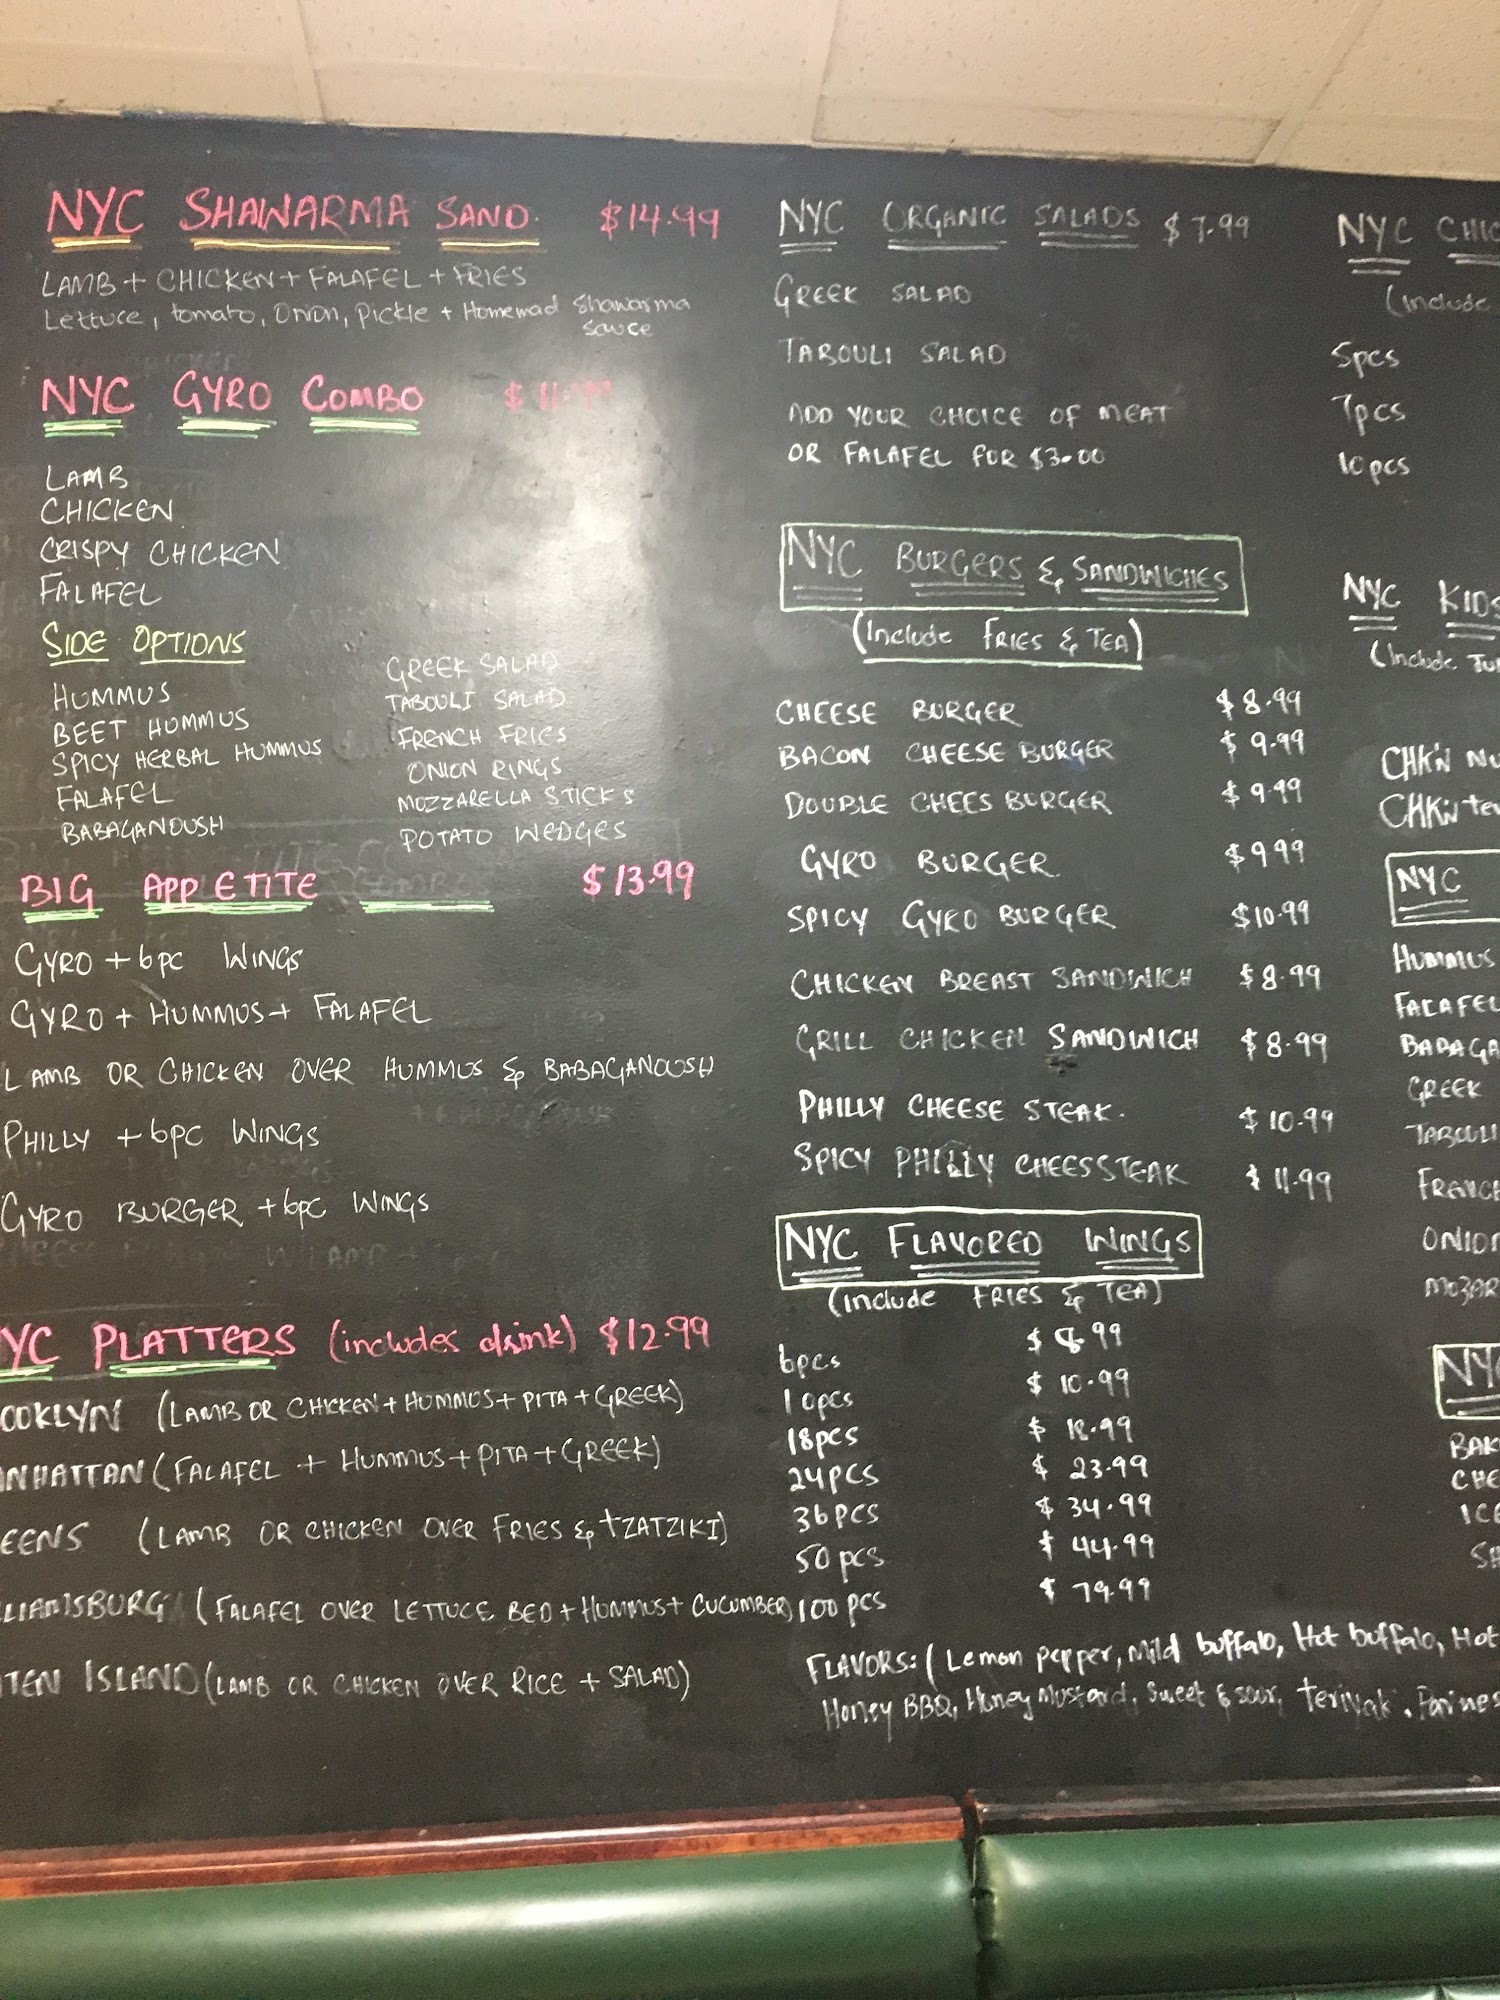 NYC SHAWARMA SAND. $14.99
LAMB + CHICKEN + FALAFEL + FRIES
Lettuce, tomato, Onion, Pickle + Homemad Shawarma
sauce
NYC GYRO COMBO $11.99
LAMB
CHICKEN
CRISPY CHICKEN
FALAFEL
SIDE OPTIONS
HUMMUS
BEET HUMMUS
SPICY HERBAL HUMMUS
FALAFEL
BABAGANOUSH
GREEK SALAD
TABOULI SALAD
FRENCH FRIES
ONION RINGS
MOZZARELLA STICKS
POTATO WEDGES
BIG APPETITE $13.99
GYRO + 6pc WINGS
GYRO + HUMMUS + FALAFEL
LAMB OR CHICKEN OVER HUMMUS & BABAGANOUSH
PHILLY + 6pc WINGS
GYRO BURGER + 6pc WINGS
YC PLATTERS (includes drink) $12.99
OOKLYN (LAMB OR CHICKEN + HUMMUS + PITA + GREEK)
NHATTAN (FALAFEL + HUMMUS + PITA + GREEK)
EENS (LAMB OR CHICKEN OVER FRIES & TZATZIKI)
LLIAMSBURG (FALAFEL OVER LETTUCE BED + HUMMUS + CUCUMBER)
TEN ISLAND (LAMB OR CHICKEN OVER RICE + SALAD)
NYC ORGANIC SALADS $7.99
GREEK SALAD
TABOULI SALAD
ADD YOUR CHOICE OF MEAT
OR FALAFEL FOR $3.00
NYC BURGERS & SANDWICHES
(Include FRIES & TEA)
CHEESE BURGER $8.99
BACON CHEESE BURGER $9.99
DOUBLE CHEES BURGER $9.99
GYRO BURGER $9.99
SPICY GYRO BURGER $10.99
CHICKEN BREAST SANDWICH $8.99
GRILL CHICKEN SANDWICH $8.99
PHILLY CHEESE STEAK. $10.99
SPICY PHILLY CHEESSTEAK $11.99
NYC FLAVORED WINGS
(include FRIES & TEA)
6pcs $8.99
10pcs $10.99
18pcs $18.99
24pcs $23.99
36pcs $34.99
50pcs $44.99
100pcs $79.99
FLAVORS: (Lemon pepper, Mild buffalo, Hot buffalo, Hot
Honey BBQ, Honey Mustard, Sweet & sour, Teriyak, Parmes
NYC CHIC
(include
5pcs
7pcs
10pcs
NYC KIDS
(Include Jui
CHK'N NU
CHK'N ten
NYC
HUMMUS
FALAFEL
BABAGA
GREEK
TABOULI
FRENCH
ONION
MOZAR
NYC
BAK
CHE
ICE